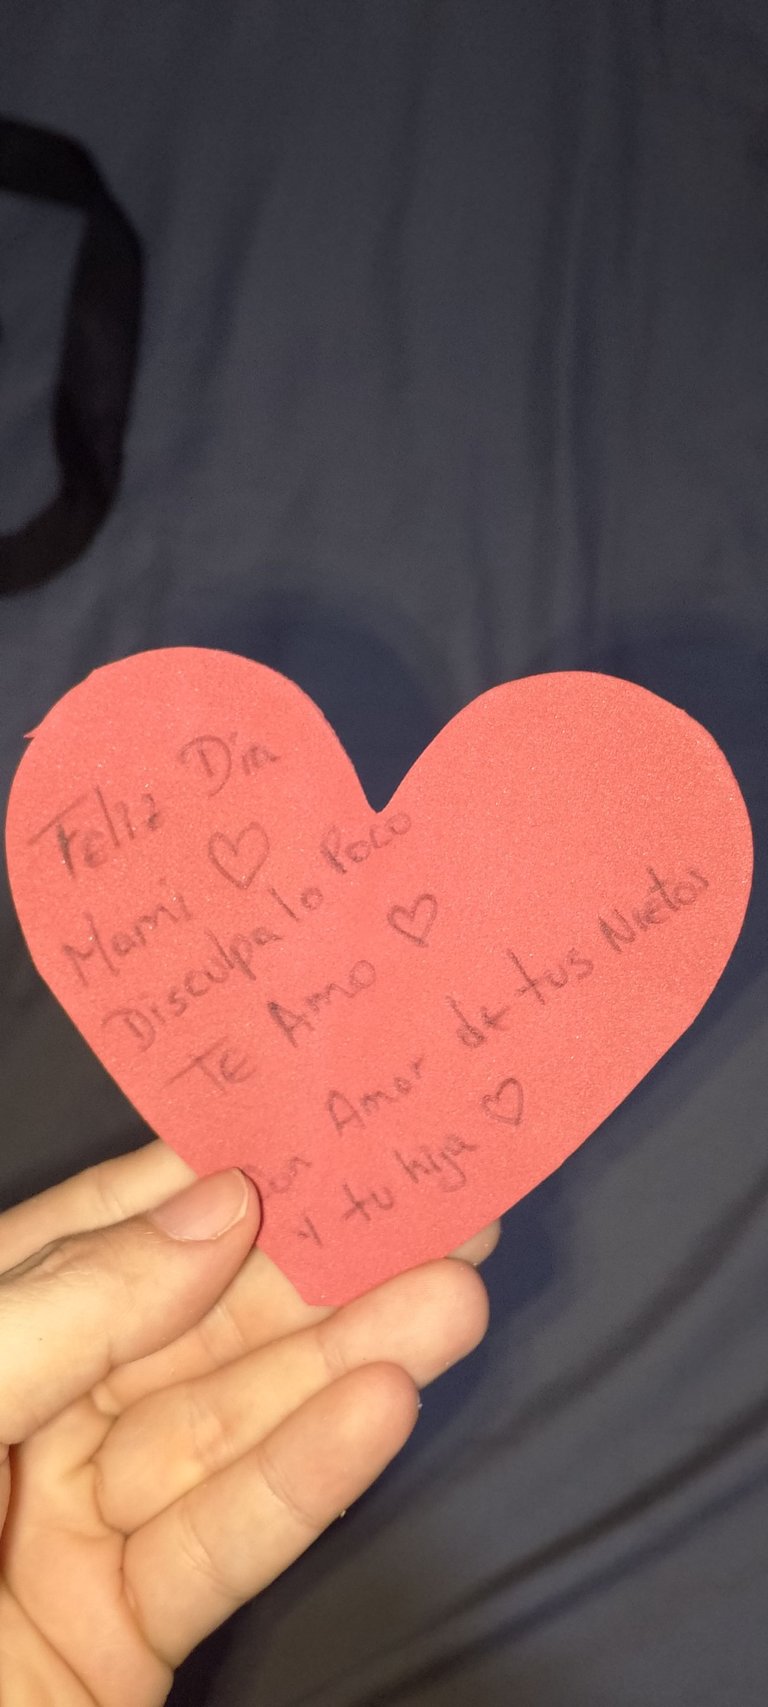 Feliz Día
Mami ♡
Disculpa lo Poco
TE Amo ♡
Con Amor de tus Nietos
y tu hija ♡